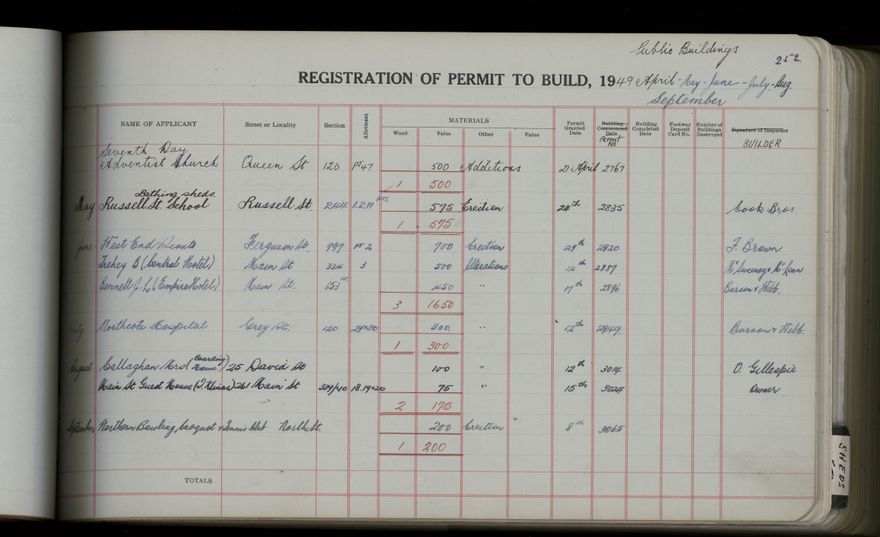 Public Buildings
252
REGISTRATION OF PERMIT TO BUILD, 1949 April - May - June - July - Aug
September
NAME OF APPLICANT Street or Locality Section Allotment MATERIALS Permit Granted Date Building Commenced Date Permit No Building Completed Date Footway Deposit Card No. Number of Buildings Destroyed Signature of Inspector BUILDER
Wood Value Other Value
Seventh Day
Adventist Church Queen St 120 pt 47 500 Additions 2 April 2767
1 500
Bathing sheds
May Russell St. School Russell St. 244 575 Erection 20th 2835 Cook Bros
1 575
June West End Scouts Ferguson St. 997 pt 2 700 Erection 29th 2820 F. Brown
Trehey B (Central Hotel) Main St 334 3 500 Alterations 14th 2887 McSweeney & McLean
Bennett J. L. (Empire Hotel) Main St. 153 450 " 17th 2896 Burson & Webb.
3 1650
July Northcote Hospital Grey St. 120 29&30 300 " 12th 2949 Burson & Webb.
1 300
August Callaghan Mrs (Boarding House) 25 David St 100 " 12th 3014 O. Gillespie
Main St Guest House 261 Main St 339/40 18.19&20 75 " 15th 3024 Owner
2 175
September Northern Bowling, Croquet & Tennis Club North St. 200 Erection 8th 3065
1 200
TOTALS
SHEDS